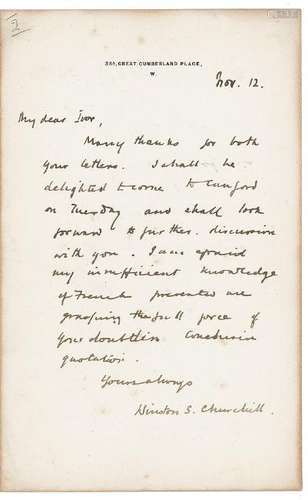 2
35A, GREAT CUMBERLAND PLACE,
W.
Nov. 12.
My dear Ivor,
Many thanks for both
your letters. I shall be
delighted to come to Canford
on Tuesday and shall look
forward to further discussion
with you. I am afraid
my insufficient knowledge
of French prevented me
grasping the full force of
your doubtless conclusive
quotation.
Yours always
Winston S. Churchill.